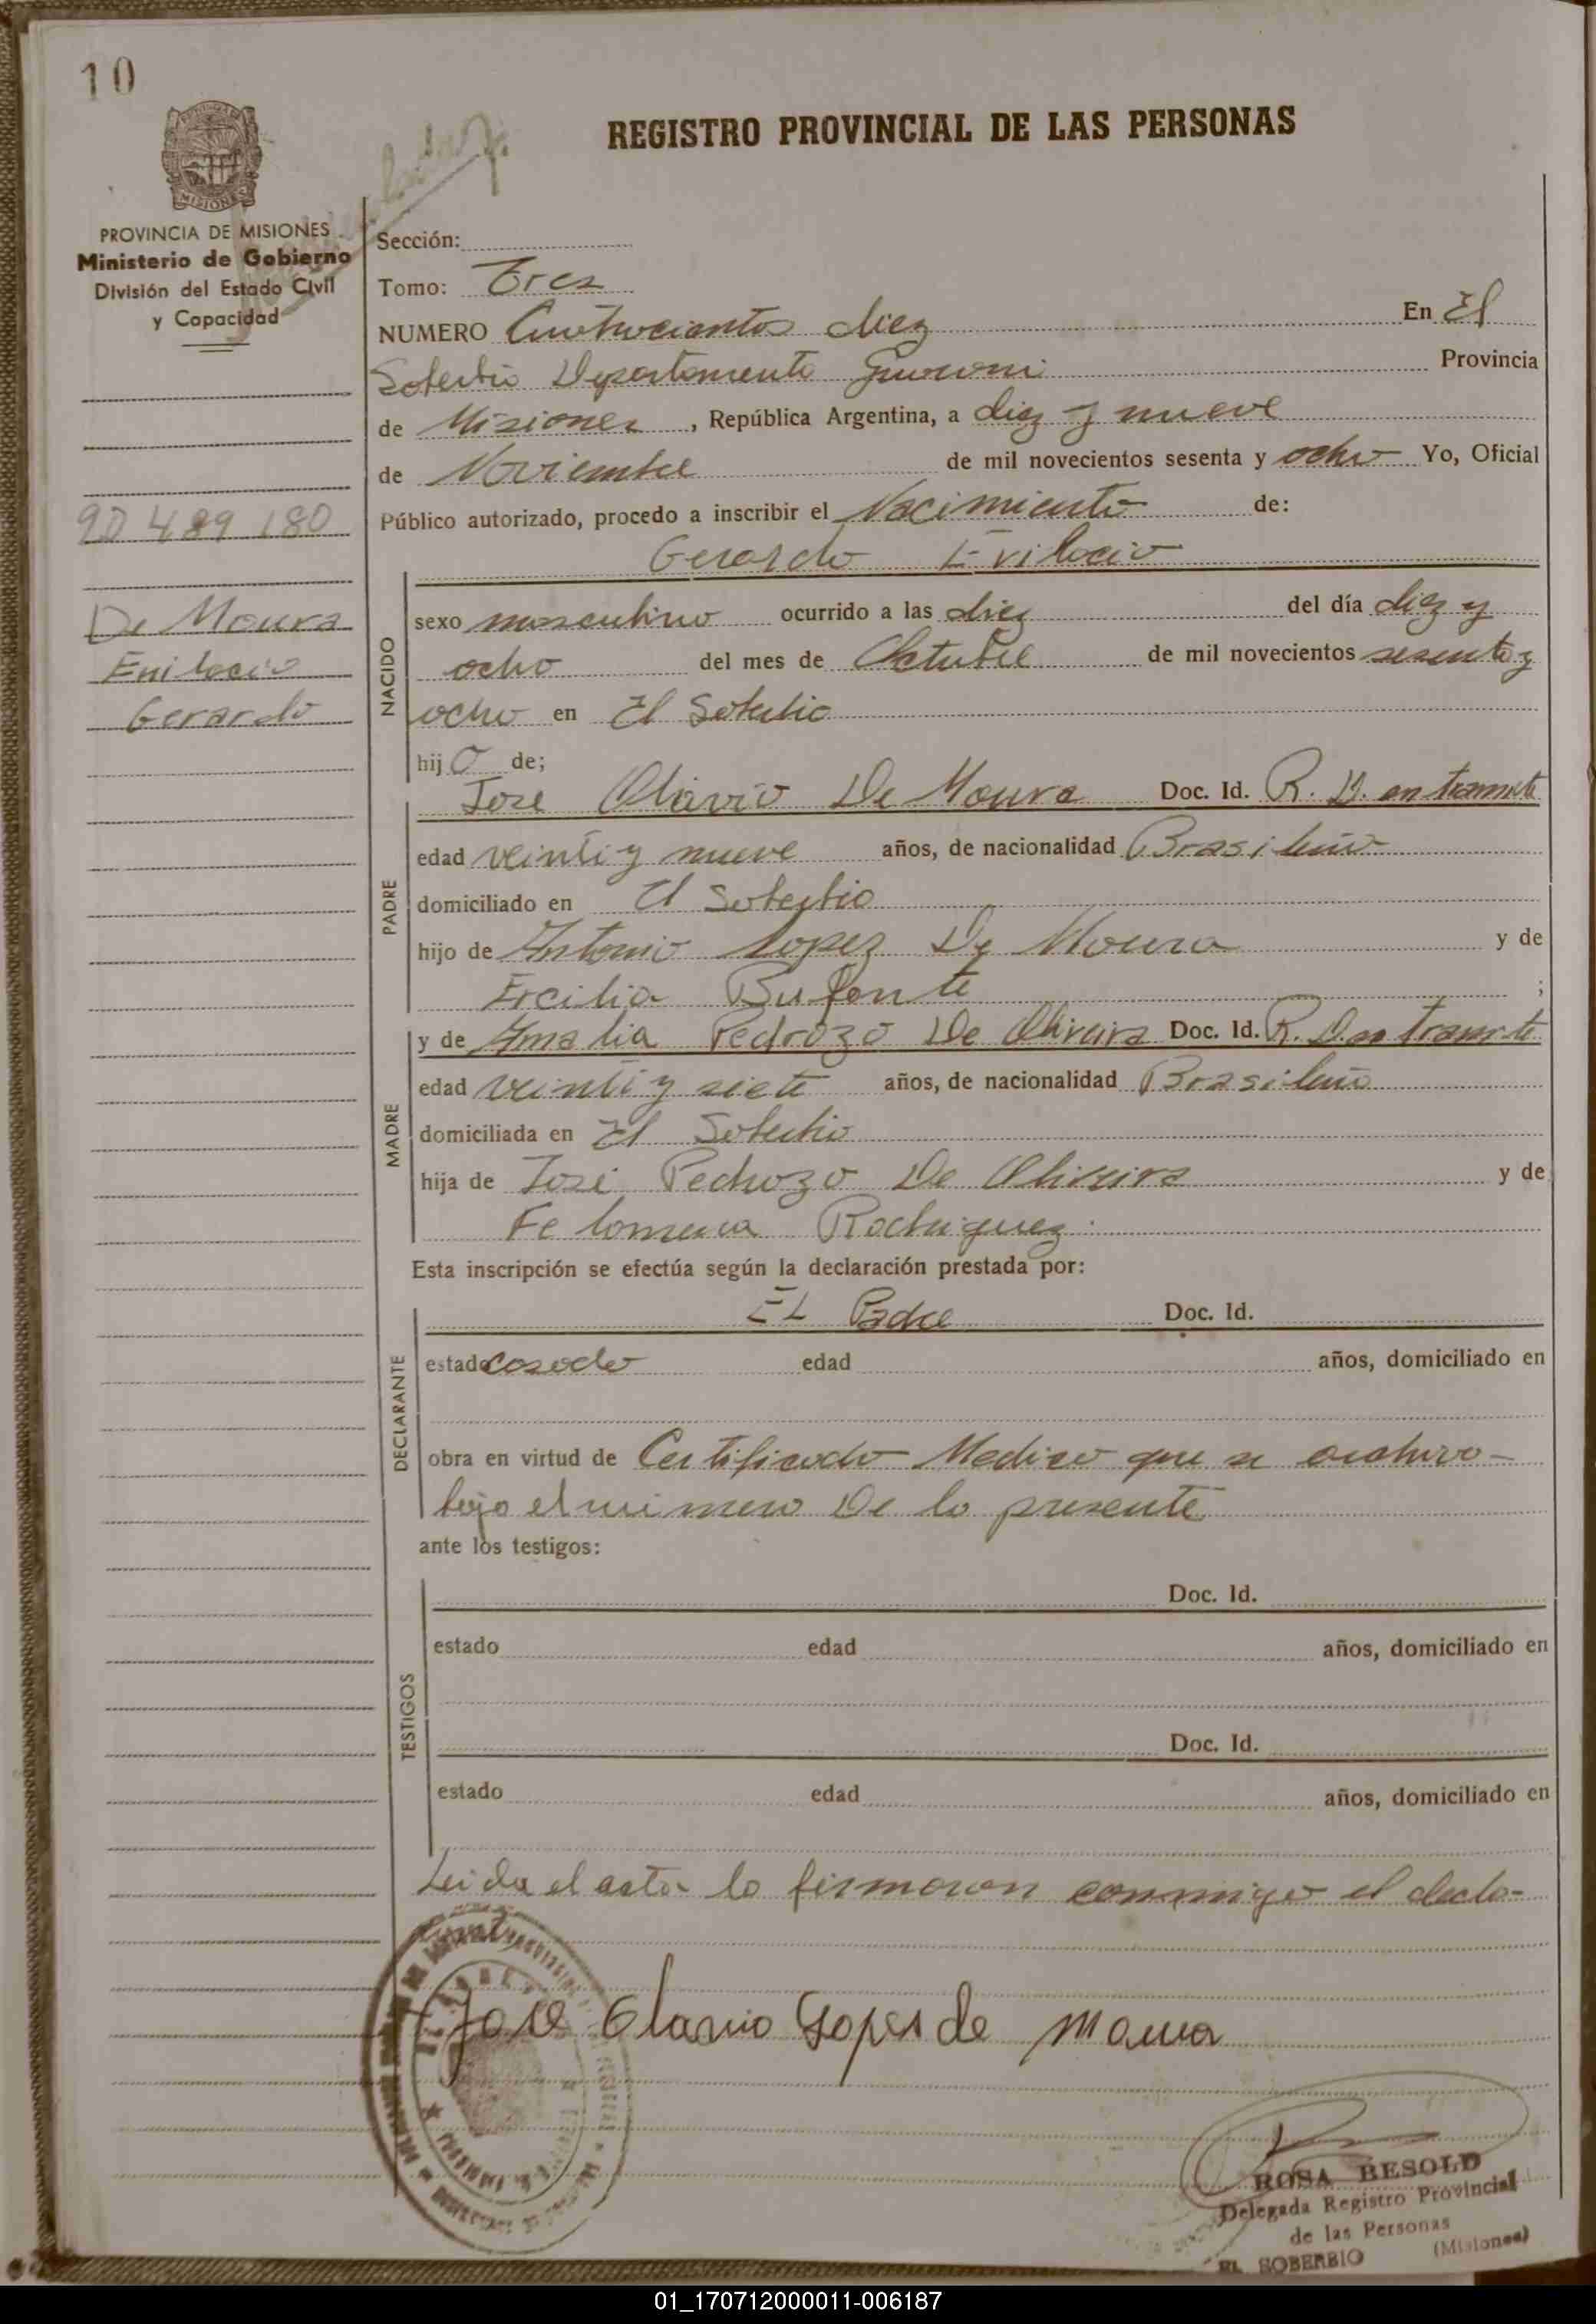 10
REGISTRO PROVINCIAL DE LAS PERSONAS
MISIONES
PROVINCIA DE MISIONES
Ministerio de Gobierno
División del Estado Civil
y Capacidad
90 489 180
De Moura
Evilocio
Gerardo
Sección:
Tomo: Tres
NUMERO Cuatrocientos diez En El
Soberbio Departamento Guarani Provincia
de Misiones, República Argentina, a diez y nueve
de Noviembre de mil novecientos sesenta y ocho Yo, Oficial
Público autorizado, procedo a inscribir el Nacimiento de:
Gerardo Evilocio
NACIDO
sexo masculino ocurrido a las diez del día diez y
ocho del mes de Octubre de mil novecientos sesenta y
ocho en El Soberbio
hijo de;
PADRE
Jose Olavio De Moura Doc. Id. R. D. en tramite
edad veinti y nueve años, de nacionalidad Brasileño
domiciliado en El Soberbio
hijo de Antonio Lopez De Moura y de
Ercilia ;
MADRE
y de Amalia Pedrozo De Oliveira Doc. Id. R. D. en tramite
edad veinti y siete años, de nacionalidad Brasileño
domiciliada en El Soberbio
hija de José Pedrozo De Oliveira y de
Felomena Rodriguez
Esta inscripción se efectúa según la declaración prestada por:
DECLARANTE
EL Padre Doc. Id.
estado casado edad años, domiciliado en
obra en virtud de Certificado Medico que se archivo
bajo el numero De la presente
ante los testigos:
TESTIGOS
Doc. Id.
estado edad años, domiciliado en
Doc. Id.
estado edad años, domiciliado en
Leida el acta la firmaron conmigo el decla-
Jose Olavio Lopes de Moura
ROSA BESOLD
Delegada Registro Provincial
de las Personas
EL SOBERBIO (Misiones)
01_170712000011-006187